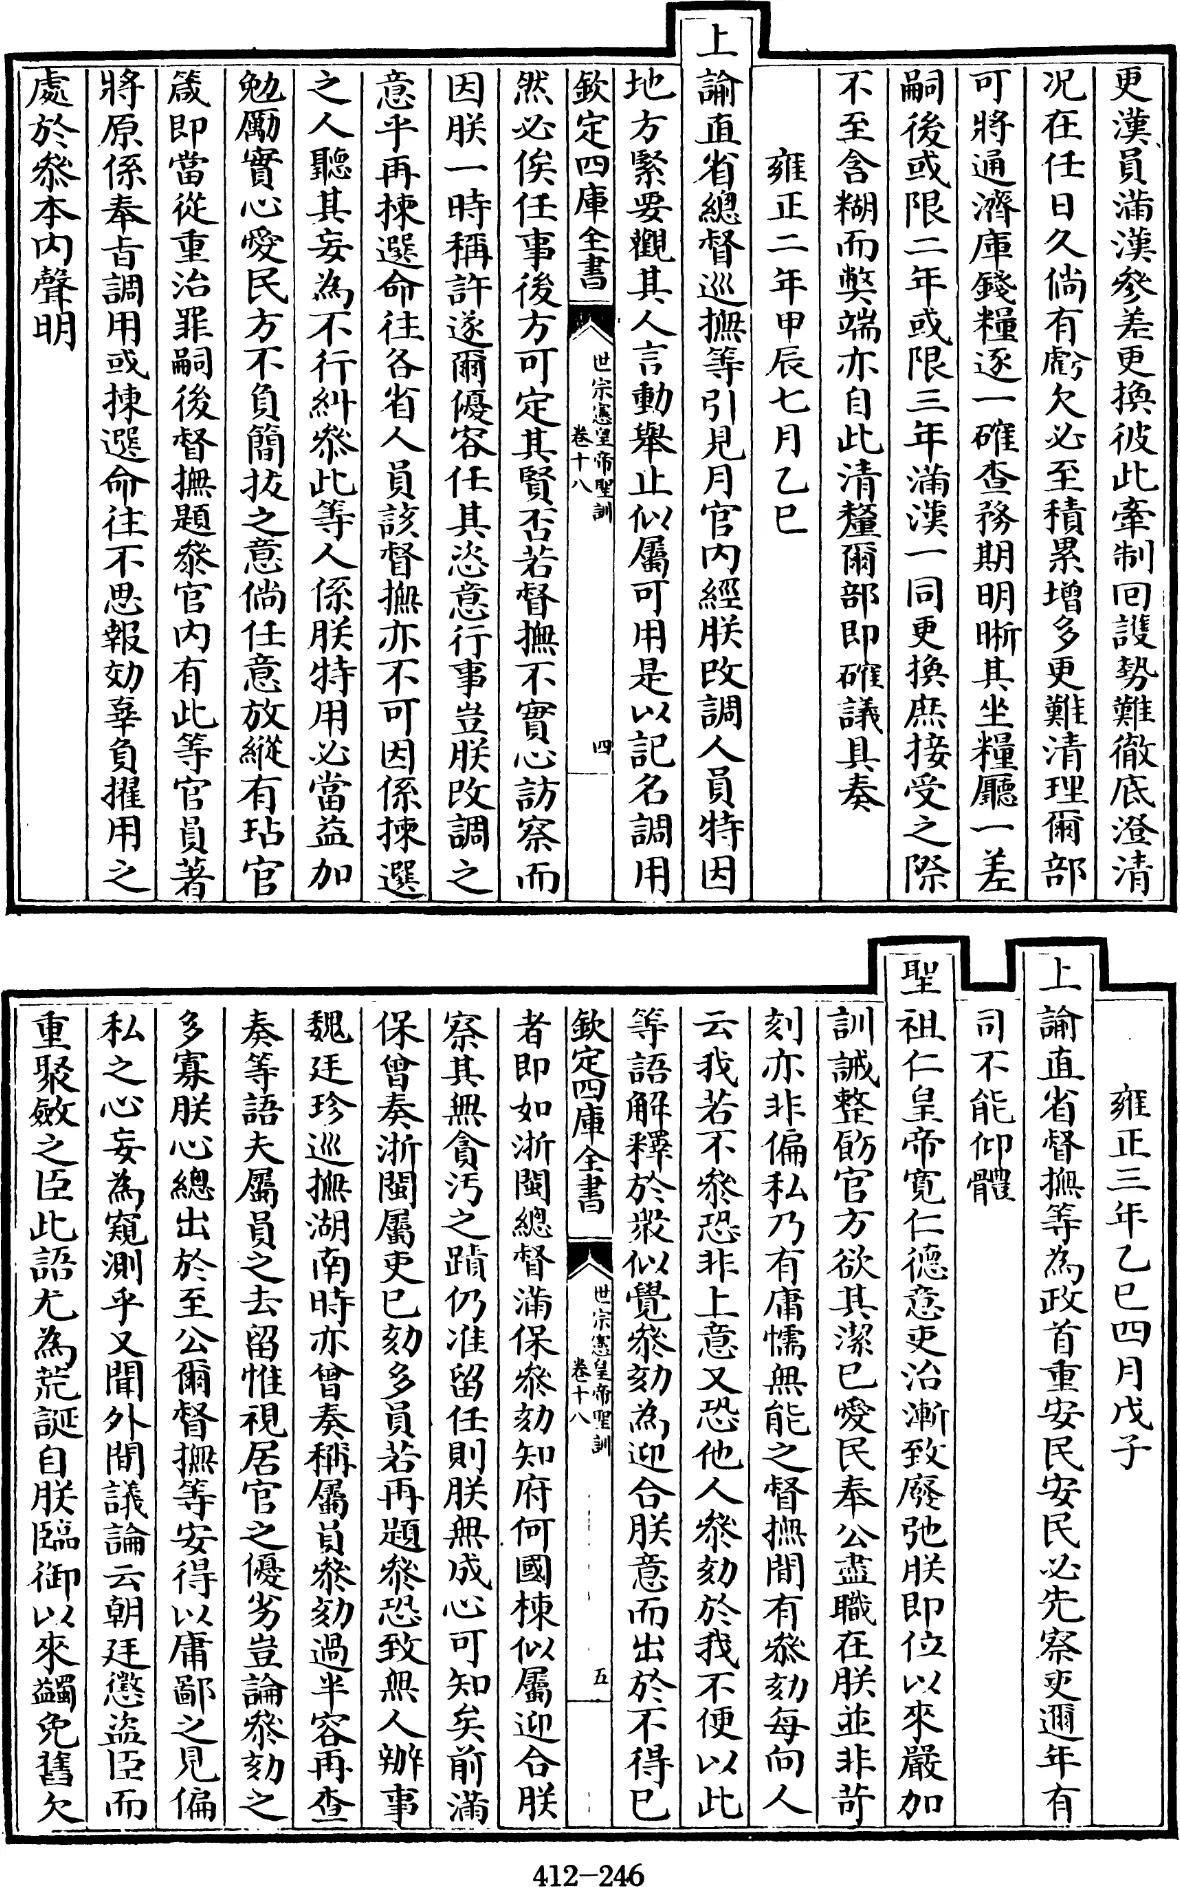 更漢員滿漢參差更換彼此牽制回護勢難徹底澄清
况在任日久倘有虧欠必至積累增多更難清理爾部
可將通濟庫錢糧逐一確查務期明晰其坐糧廳一差
嗣後或限二年或限三年滿漢一同更換庶接受之際
不至含糊而弊端亦自此清釐爾部即確議具奏
雍正二年甲辰七月乙巳
上諭直省總督巡撫等引見月官内經朕改調人員特因
地方緊要觀其人言動舉止似屬可用是以記名調用
欽定四庫全書
世宗憲皇帝聖訓
卷十八
四
然必俟任事後方可定其賢否若督撫不實心訪察而
因朕一時稱許遂爾優容任其恣意行事豈朕改調之
意乎再揀選命往各省人員該督撫亦不可因係揀選
之人聽其妄為不行糾叅此等人係朕特用必當益加
勉勵實心愛民方不負簡拔之意倘任意放縱有玷官
箴即當從重治罪嗣後督撫題叅官内有此等官員著
將原係奉旨調用或揀選命往不思報効辜負擢用之
處於叅本内聲明
雍正三年乙巳四月戊子
上諭直省督撫等為政首重安民安民必先察吏邇年有
司不能仰體
聖祖仁皇帝寛仁德意吏治漸致廢弛朕即位以來嚴加
訓誡整飭官方欲其潔已愛民奉公盡職在朕並非苛
刻亦非偏私乃有庸懦無能之督撫間有叅劾每向人
云我若不叅恐非上意又恐他人叅劾於我不便以此
等語解釋於衆似覺叅劾為迎合朕意而出於不得已
欽定四庫全書
世宗憲皇帝聖訓
卷十八
五
者即如浙閩總督滿保叅劾知府何國棟似屬迎合朕
察其無貪汚之蹟仍准留任則朕無成心可知矣前滿
保曾奏浙閩屬吏已劾多員若再題叅恐致無人辦事
魏廷珍巡撫湖南時亦曾奏稱屬員叅劾過半容再查
奏等語夫屬員之去留惟視居官之優劣豈論叅劾之
多寡朕心總出於至公爾督撫等安得以庸鄙之見偏
私之心妄為窺測乎又聞外間議論云朝廷懲盗臣而
重聚斂之臣此語尤為荒誕自朕臨御以來蠲免舊欠
412-246